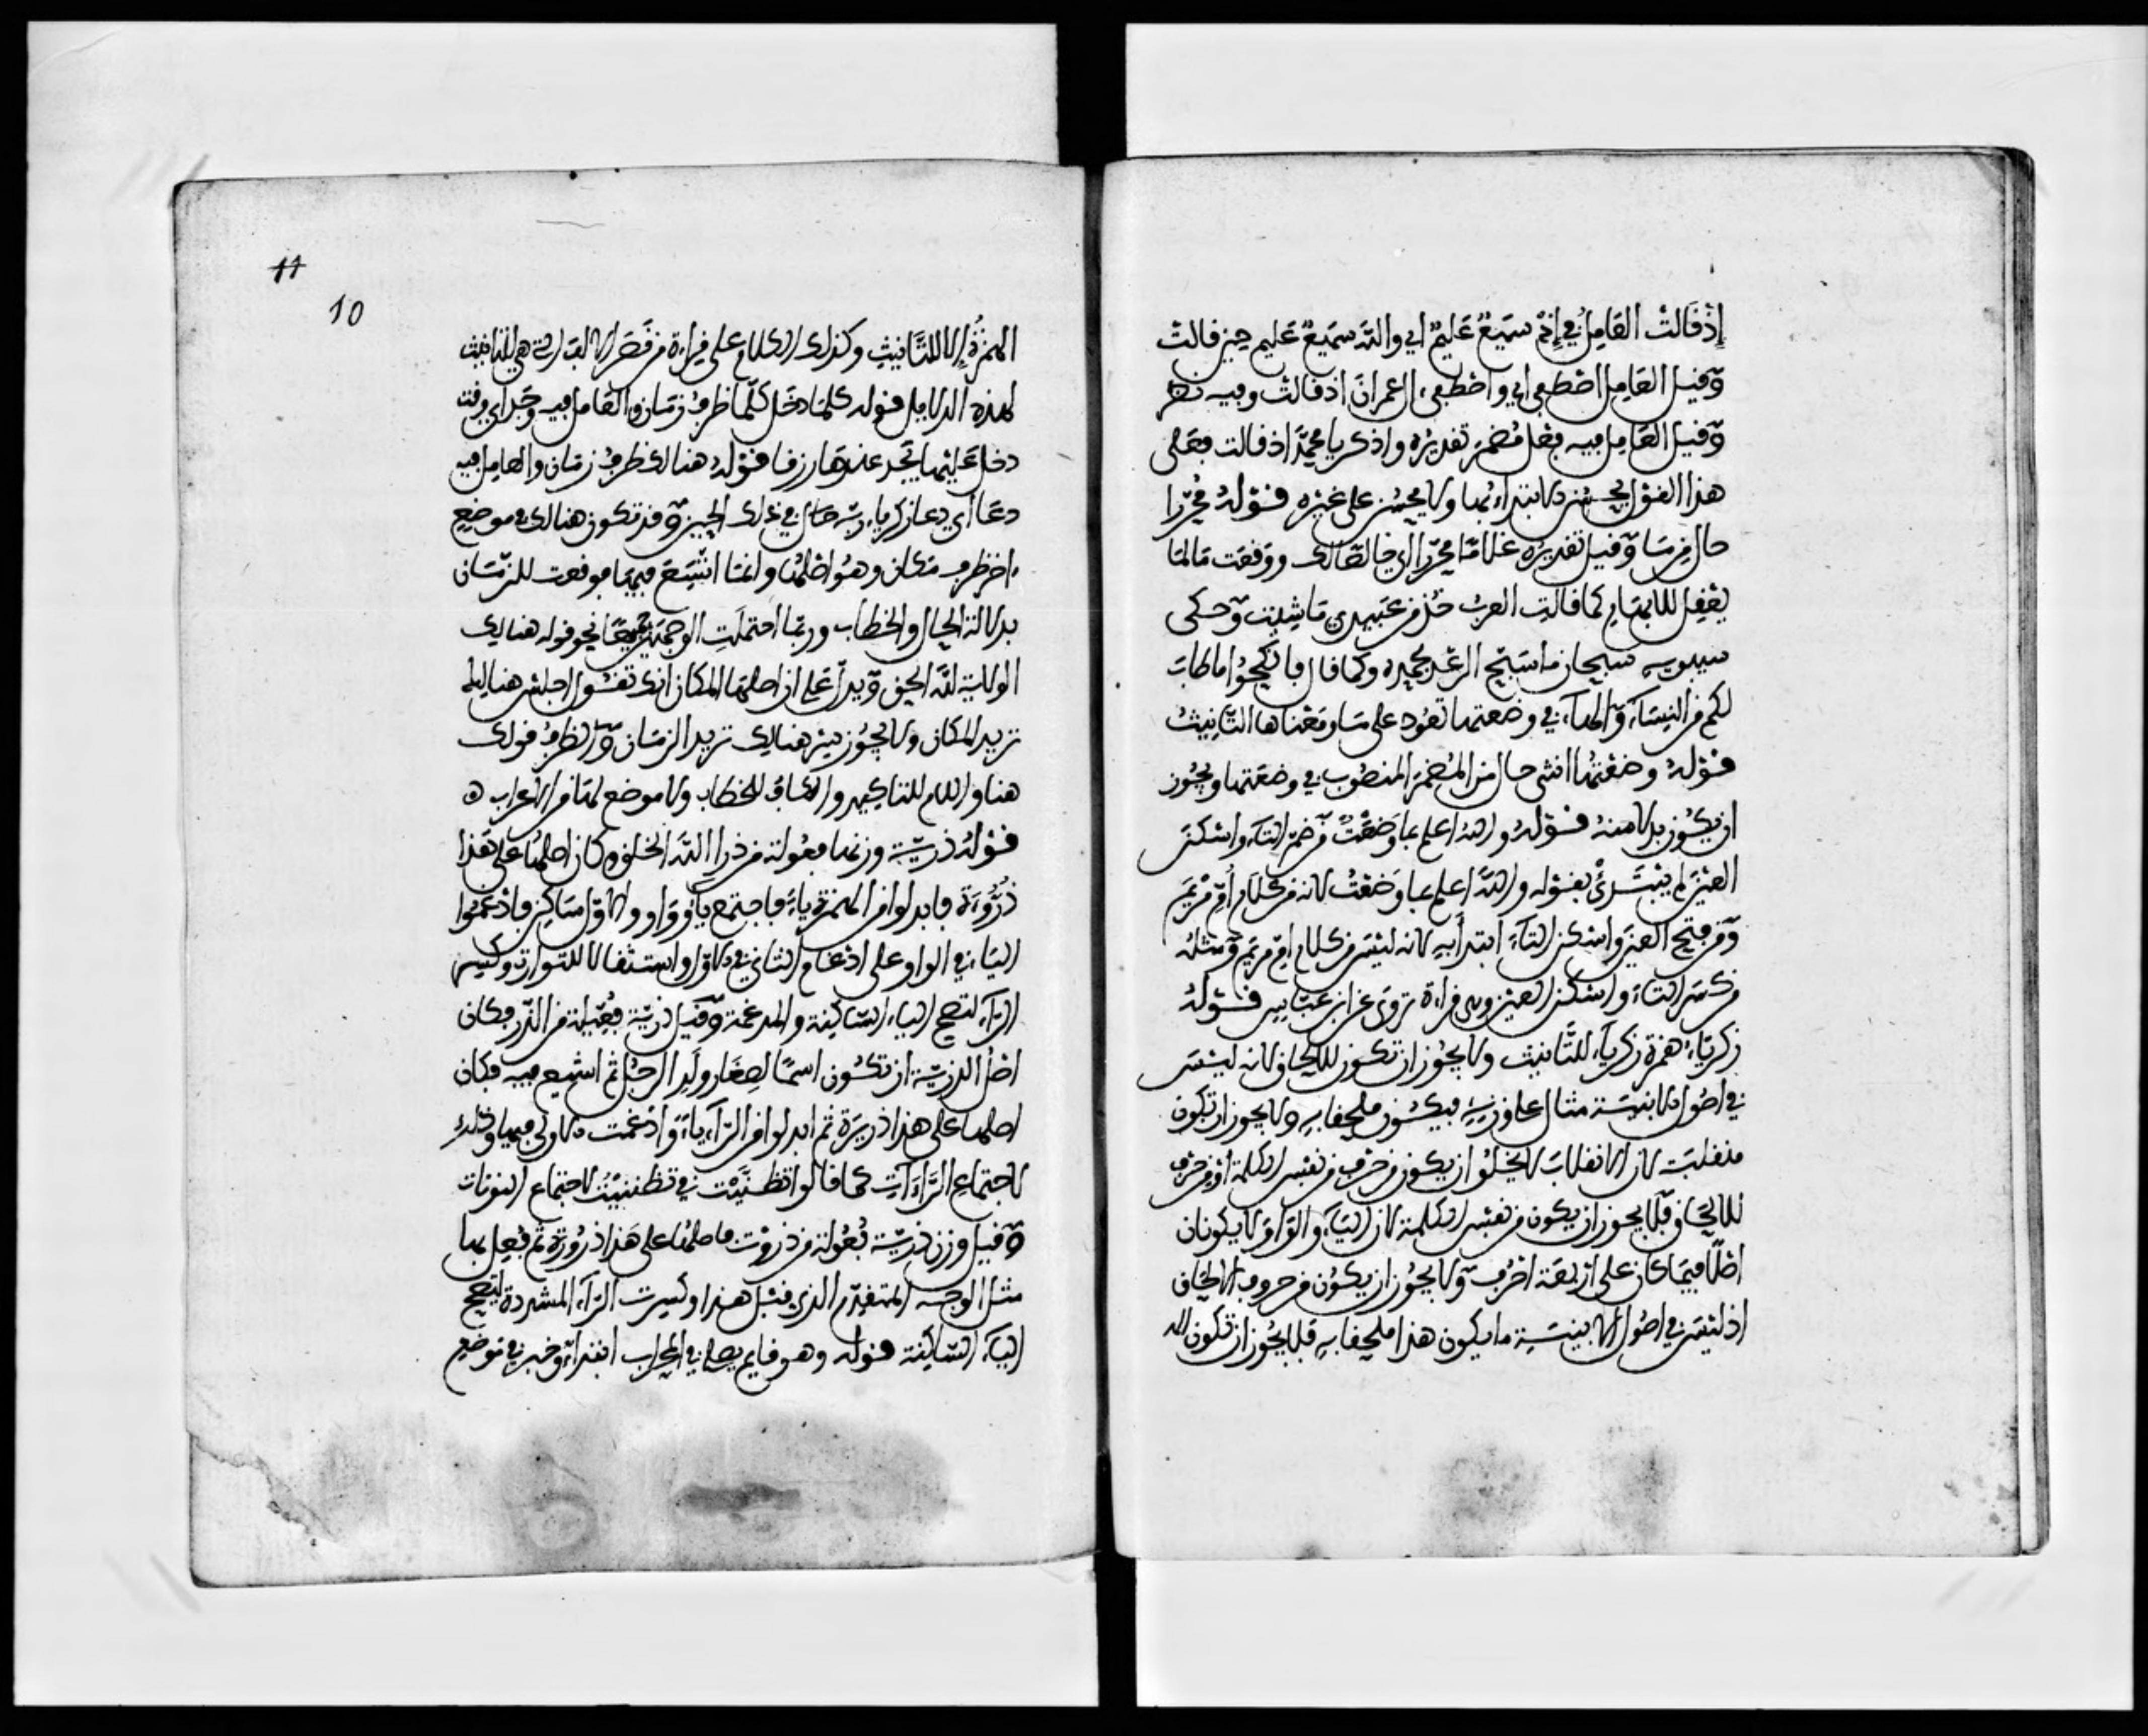 إذ قالت العامل في إذ سميع عليم أي والله سميع عليم حين قالت
وقيل العامل اصطفى أي واصطفى ءال عمران اذ قالت وفيه نظر
وقيل العامل فيه فعل مضمر تقديره واذكر يا محمد اذ قالت فعلى
هذا القول يحسن الابتداء بها ولا يحسن على غيره قوله محررا
حال من ما وقيل تقديره غلاما محررا اي خالصا لك ووقعت ما لما
يعقل للابهام كما قالت العرب خذ من عبيدي ما شيت وحكى
سيبويه سبحان ما سبح الرعد بحمده وكما قال فانكحوا ما طاب
لكم من النساء والهاء في وضعتها تعود على ما ومعناها التانيث
قوله وضعتها انثى حال من المضمر المنصوب في وضعتها ويجوز
ان يكون بدلا منه قوله والله اعلم بما وضعت من ضم التاء واسكن
العين لم يبتدئ بقوله والله اعلم بما وضعت لانه من كلام أم مريم
ومن فتح العين واسكن التاء ابتدأ به لانه ليس من كلام ام مريم ومثله
من كسر التاء واسكن العين وهي قراءة تروى عن ابن عباس قوله
زكرياء همزة زكرياء للتانيث ولا يجوز ان تكون للالحاق لانه ليس
في اصول الابنية مثال على وزنه فيكون ملحقا به ولا يجوز ان تكون
منقلبة لان الانقلاب لا يخلو ان يكون من حرف من نفس الكلمة أو من حرف
للالحاق فلا يجوز ان يكون من نفس الكلمة لان الياء والواو لا يكونان
اصلا فيما كان على اربعة احرف ولا يجوز ان يكون من حروف الالحاق
اذ ليس في اصول الابنية ما يكون هذا ملحقا به فلا يجوز ان تكون
11
10
الهمزة إلا للتانيث وكذلك الكلام على قراءة من قصر الالف التي هي للتانيث
لهذه الدلايل قوله كلما دخل كلما ظرف زمان والعامل فيه وجد اي وقت
دخل عليها يجد عندها رزقا قوله هنالك ظرف زمان والعامل فيه
دعا أي دعا زكرياء ربه في ذلك الحين وقد تكون هنالك في موضع
ءاخر ظرف مكان وهو اصلها وانما اتسع فيها فوقعت للزمان
بدلالة الحال والخطاب وربما احتملت الوجهين جميعا نحو قوله هنالك
الولاية لله الحق ويدل على ان اصلها المكان انك تقول اجلس هنالك
تريد المكان ولا يجوز سر هنالك تريد الزمان والظرف قولك
هنا واللام للتاكيد والكاف للخطاب ولا موضع لها من الاعراب
قوله ذرية وزنها فعولة من ذرا الله الخلق كان اصلها على هذا
ذروءة فابدلوا من الهمزة ياء فاجتمع ياء وواو والاول ساكن فادغموا
الياء في الواو على ادغام الثاني في الاول استثقالا للواوات وكسرت
الراء لتصح الياء الساكنة والمدغمة وقيل ذرية فعيلة من الذر فكان
اصل الذرية ان تكون اسما لصغار ولد الرجل ثم اتسع فيه فكان
اصلها على هذا ذريرة ثم ابدلوا من الراء ياء وادغمت الاولى فيها وذلك
لاجتماع الراءات كما قالوا تظنيت في تظننت لاجتماع النونات
وقيل وزن ذرية فعولة من ذروت فاصلها على هذا ذرووة ثم فعل بها
مثل الوجه المتقدم الذي قبل هذا وكسرت الراء المشددة لتصح
الياء الساكنة قوله وهو قايم يصلي في المحراب ابتداء وخبر في موضع